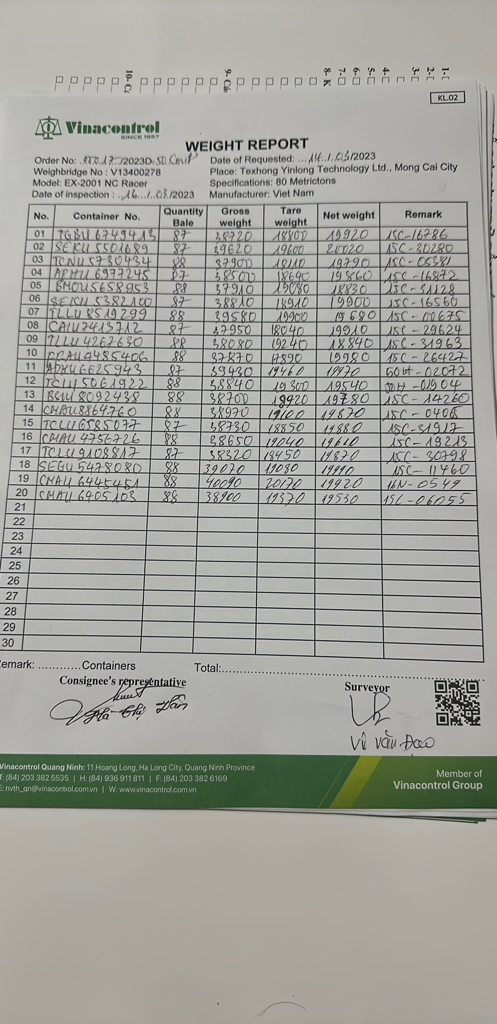 KL.02
Vinacontrol
SINCE 1957
WEIGHT REPORT
Order No: /2023D
Date of Requested: 14../.03/2023
Weighbridge No : V13400278
Place: Texhong Yinlong Technology Ltd., Mong Cai City
Model: EX-2001 NC Racer
Specifications: 80 Metrictons
Date of inspection: 16../.03/2023
Manufacturer: Viet Nam
No. Container No. Quantity Bale Gross weight Tare weight Net weight Remark
01 TGBU 6749413 87 38720 18800 19920 15C-16786
02 SEKU 5501689 87 39620 19600 20020 15C-30280
03 TCNU 5730434 88 37900 18110 19790 15C-05381
04 APHU 6977245 87 38500 18640 19860 15C-16872
05 BMOU 5658953 88 37910 19080 18830 15C-31128
06 5382100 87 38810 18910 19900 15C-16560
07 TLLU 8519299 88 39580 19900 19680 15C-00675
08 CAIU 7413712 87 37950 18040 19910 15C-29624
09 TLLU 4267630 88 38080 19240 18840 15C-31963
10 5406 88 37870 17890 19980 15C-26427
11 APHU 6625943 87 39430 19460 19970 02072
12 TCLU 5061922 88 38840 19300 19540 01904
13 8092438 88 38700 18920 19780 15C-14260
14 CMAU 8864760 88 38970 19100 19870 15C-0406
15 TCLU 6585077 87 38730 18850 19880 15C-31917
16 CMAU 4756726 88 38650 19040 19610 15C-19213
17 TCLU 9108817 87 38320 18450 19870 15C-30798
18 SEGU 5478080 88 39070 19080 19990 15C-11460
19 CMAU 6445451 88 40090 20170 19920 16N-0549
20 CMAU 6405103 88 38900 19370 19530 15C-06055
21
22
23
24
25
26
27
28
29
30
emark: ............Containers Total:
Consignee's representative
Surveyor
Vũ Văn Đạo
Vinacontrol Quang Ninh: 11 Hoang Long, Ha Long City, Quang Ninh Province
T: (84) 203 382 5535 | H: (84) 936 911 811 | F: (84) 203 382 6169
E: nvth_qn@vinacontrol.com.vn | W: www.vinacontrol.com.vn
Member of
Vinacontrol Group